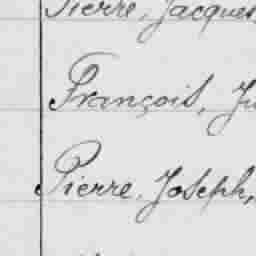 Pierre, Jacques
François, Ju
Pierre, Joseph,